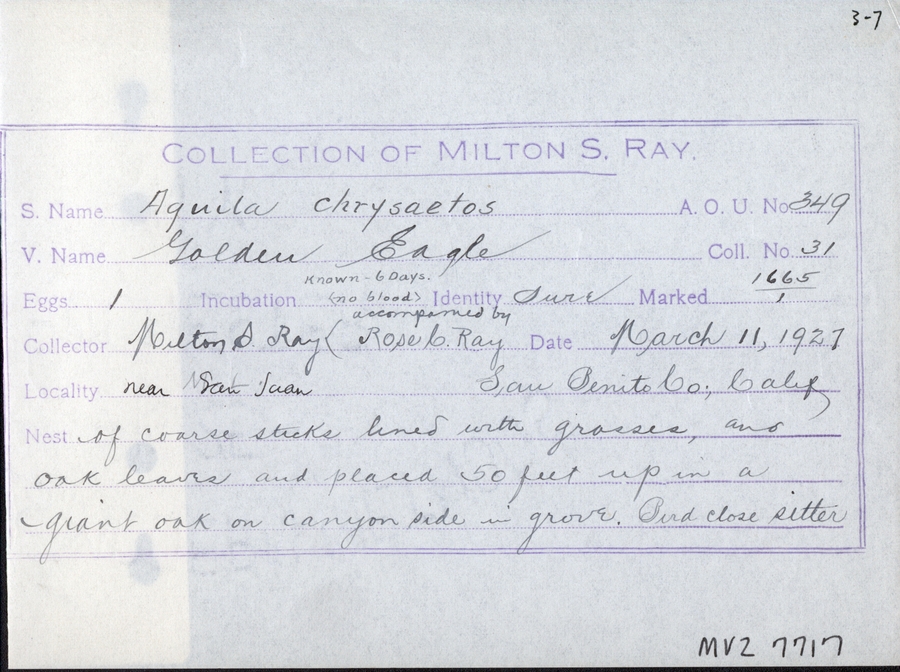 3-7
COLLECTION OF MILTON S. RAY.
S. Name Aquila chrysaetos A. O. U. No. 349
V. Name Golden Eagle Coll. No. 31
Known - 6 Days.
Eggs 1 Incubation (no blood) Identity Sure Marked 1665/1
accompanied by
Collector Milton S. Ray ( Rose C. Ray Date March 11, 1927
Locality near San Juan San Benito Co., Calif
Nest of coarse sticks lined with grasses, and
oak leaves and placed 50 feet up in a
giant oak on canyon side in grove. Bird close sitter
MVZ 7717